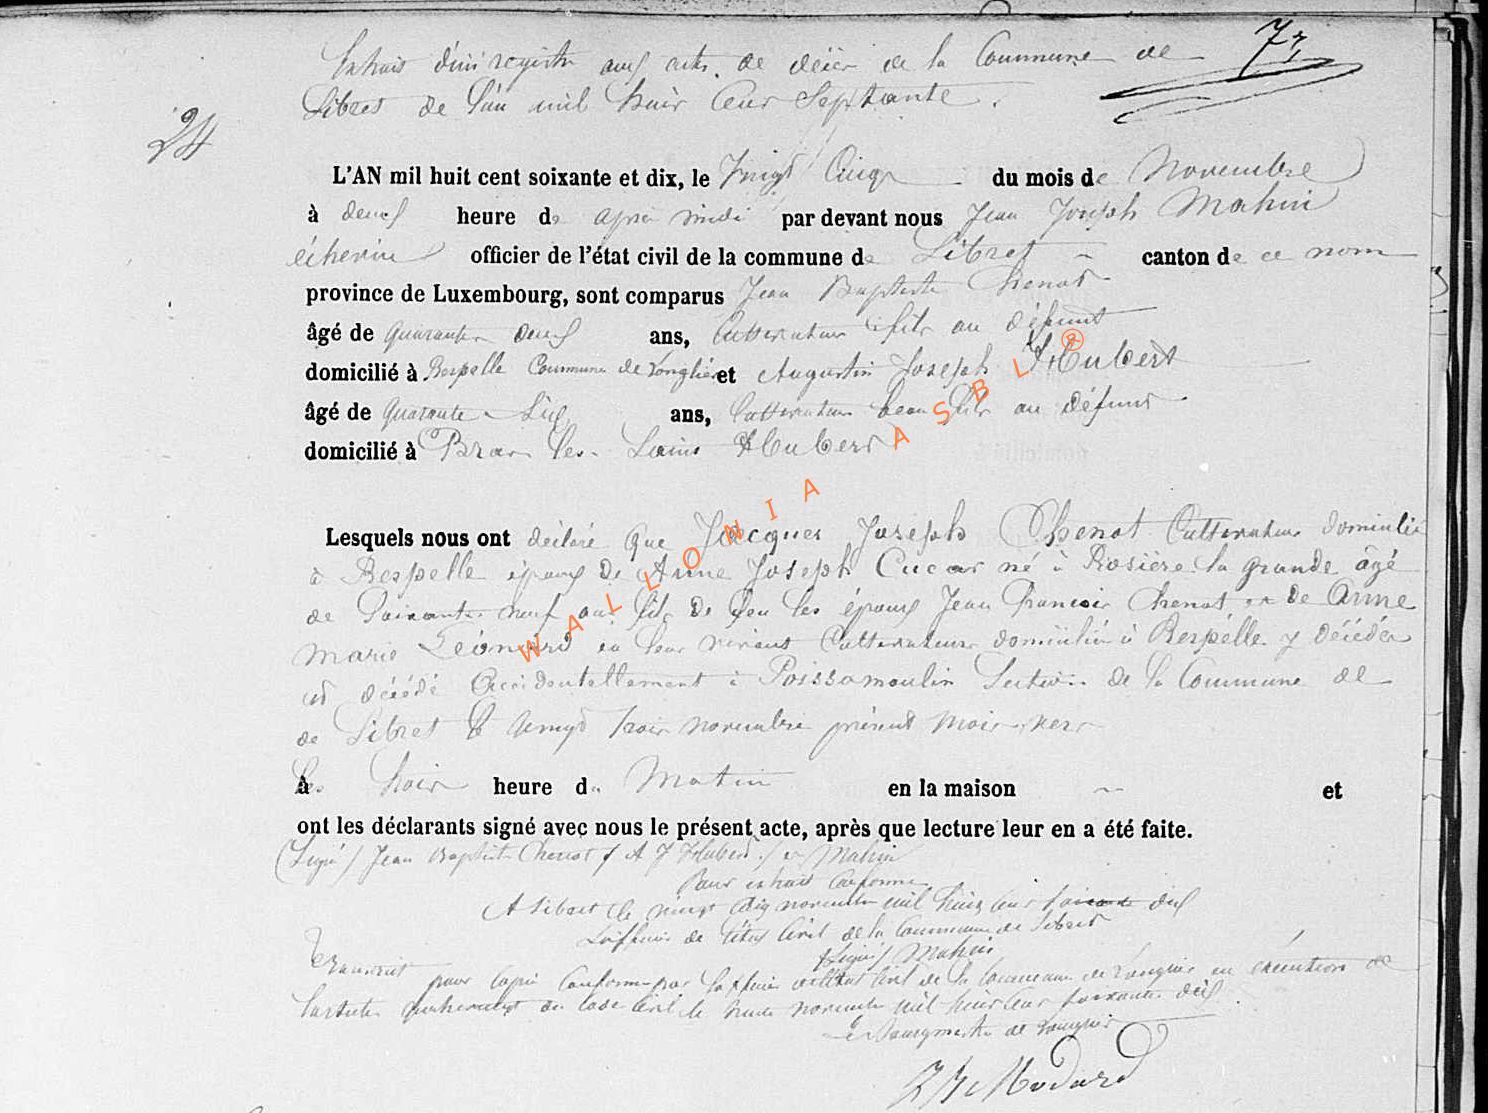 Extrait d'un registre aux actes de décès de la Commune de
73
Libret de l'an mil huit cent septante.
24
L'AN mil huit cent soixante et dix, le vingt Cinq du mois de Novembre
à deux heure de après midi par devant nous Jean Joseph Mahin
échevin officier de l'état civil de la commune de Libret canton de ce nom
province de Luxembourg, sont comparus Jean Baptiste Chenot
âgé de quarante deux ans, Cultivateur fils au défunt
domicilié à Respelle Commune de Longlier et Augustin Joseph Hubert
âgé de quarante six ans, Cultivateur beau fils au défunt
domicilié à Bras les Saint Hubert
Lesquels nous ont déclaré que Jacques Joseph Chenot Cultivateur domicilié
à Respelle époux de Anne Joseph né à Rosière la grande âgé
de soixante neuf ans fils de feu les époux Jean François Chenot et de Anne
Marie Léonard en leur vivant Cultivateurs domiciliés à Respelle y décédés
est décédé accidentellement à Poissomoulin Section de la Commune de
de Libret le vingt trois novembre présent mois vers
les trois heure du Matin en la maison et
ont les déclarants signé avec nous le présent acte, après que lecture leur en a été faite.
(Signé) Jean Baptiste Chenot / A J Hubert / et Mahin
Pour extrait conforme
A Libret le vingt novembre mil huit cent soixante dix
L'officier de l'état Civil de la Commune de Libret
(Signé) Mahin
Transcrit pour copie conforme par l'officier de l'état Civil de la Commune de Longlier en exécution de
l'article du Code Civil le trente novembre mil huit cent soixante dix
Le Bourgmestre de Longlier
WALLONIA ASBL ®